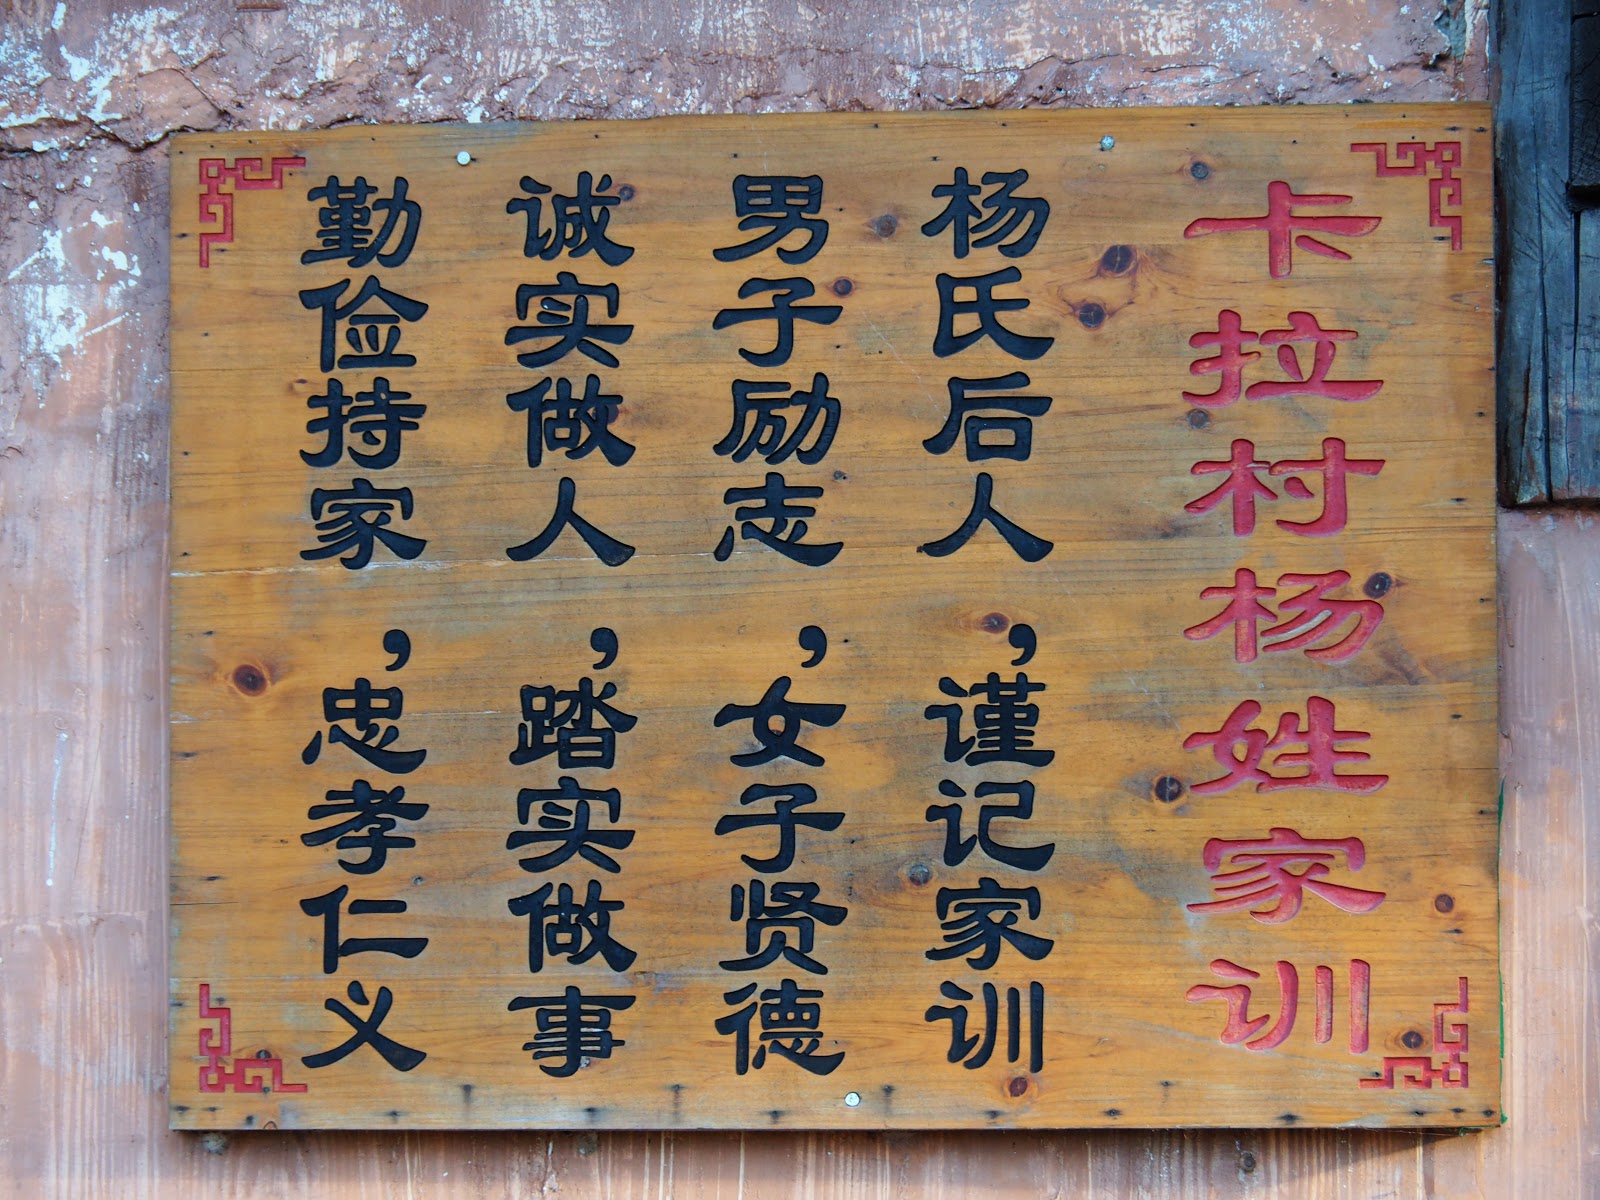 卡拉村杨姓家训
杨氏后人，谨记家训
男子励志，女子贤德
诚实做人，踏实做事
勤俭持家，忠孝仁义